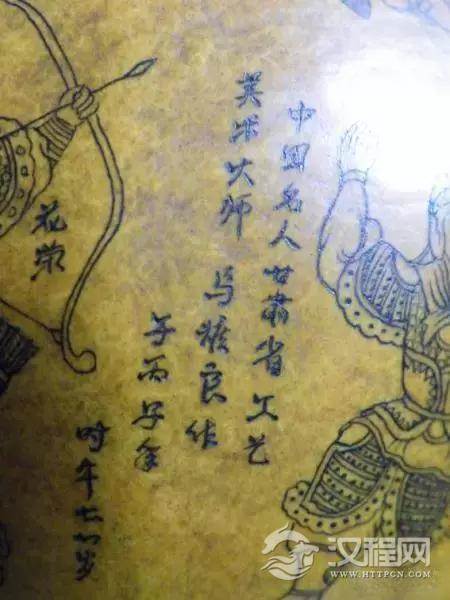 中国名人甘肃省工艺
美术大师 马耀良作
于丙子年
时年七八岁
花荣
汉程网
WWW.HTTPCN.COM